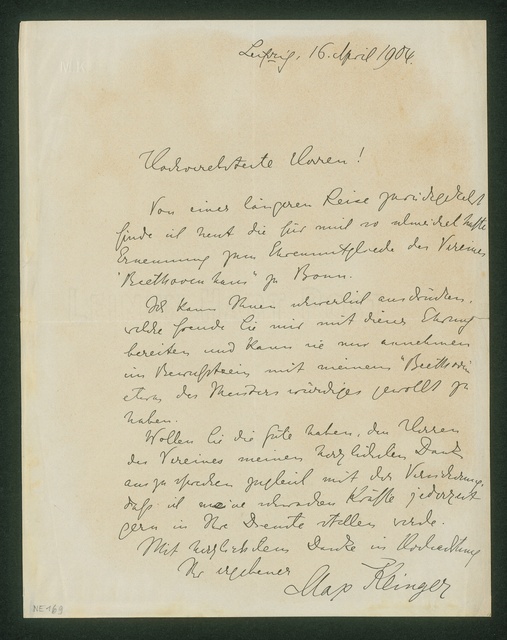 Leipzig, 16. April 1904.
Hochverehrteste Herren!
Von einer längeren Reise zurückgekehrt
finde ich heut die für mich so schmeichelhafte
Ernennung zum Ehrenmitgliede des Vereines
"Beethovenhaus" zu Bonn.
Ich kann Ihnen schwerlich ausdrücken,
welche Freude Sie mir mit dieser Ehrung
bereiten und kann sie nur annehmen
im Bewußtsein mit meinem "Beethoven"
etwas des Meisters würdiges gewollt zu
haben.
Wollen Sie die Güte haben, den Herren
des Vereines meinen herzlichsten Dank
auszusprechen zugleich mit der Versicherung,
daß ich meine schwachen Kräfte jederzeit
gern in Ihre Dienste stellen werde.
Mit herzlichstem Danke in Hochachtung
Ihr ergebener
Max Klinger
NE 169